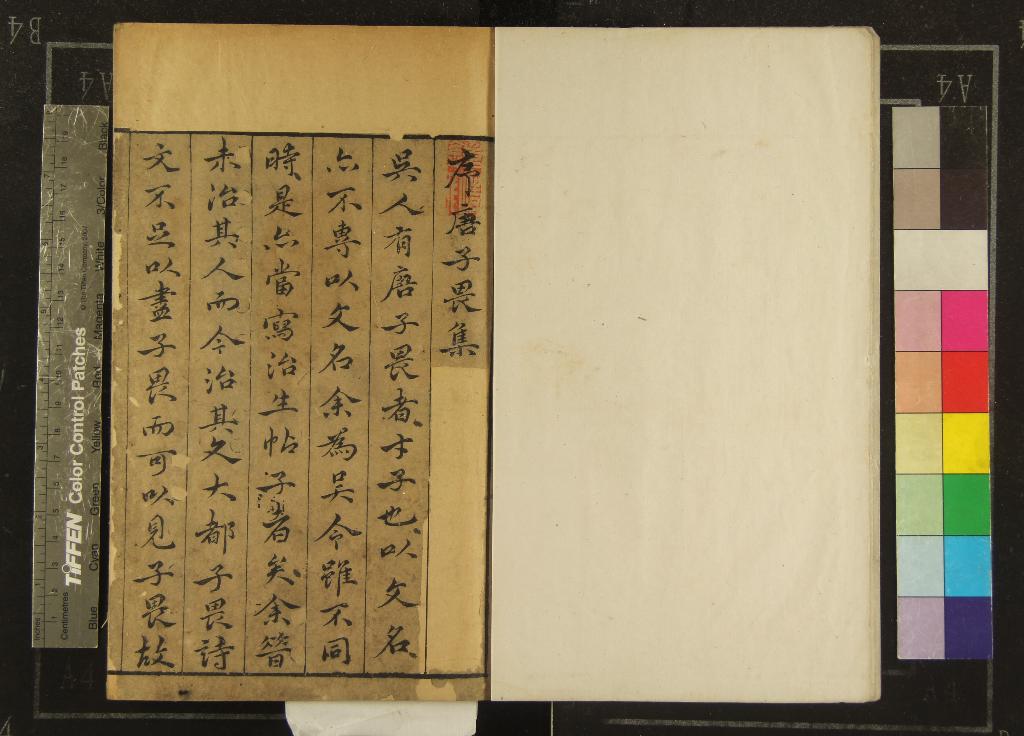 序唐子畏集
吳人有唐子畏者才子也以文名
亦不專以文名余為吳令雖不同
時是亦當寫治生帖子者矣余昔
未治其人而今治其文大都子畏詩
文不足以盡子畏而可以見子畏故
TIFFEN Color Control Patches
© The Tiffen Company, 2007
Centimetres
Inches
Blue
Cyan
Green
Yellow
Red
Magenta
White
3/Color
Black
B4
A4
A4